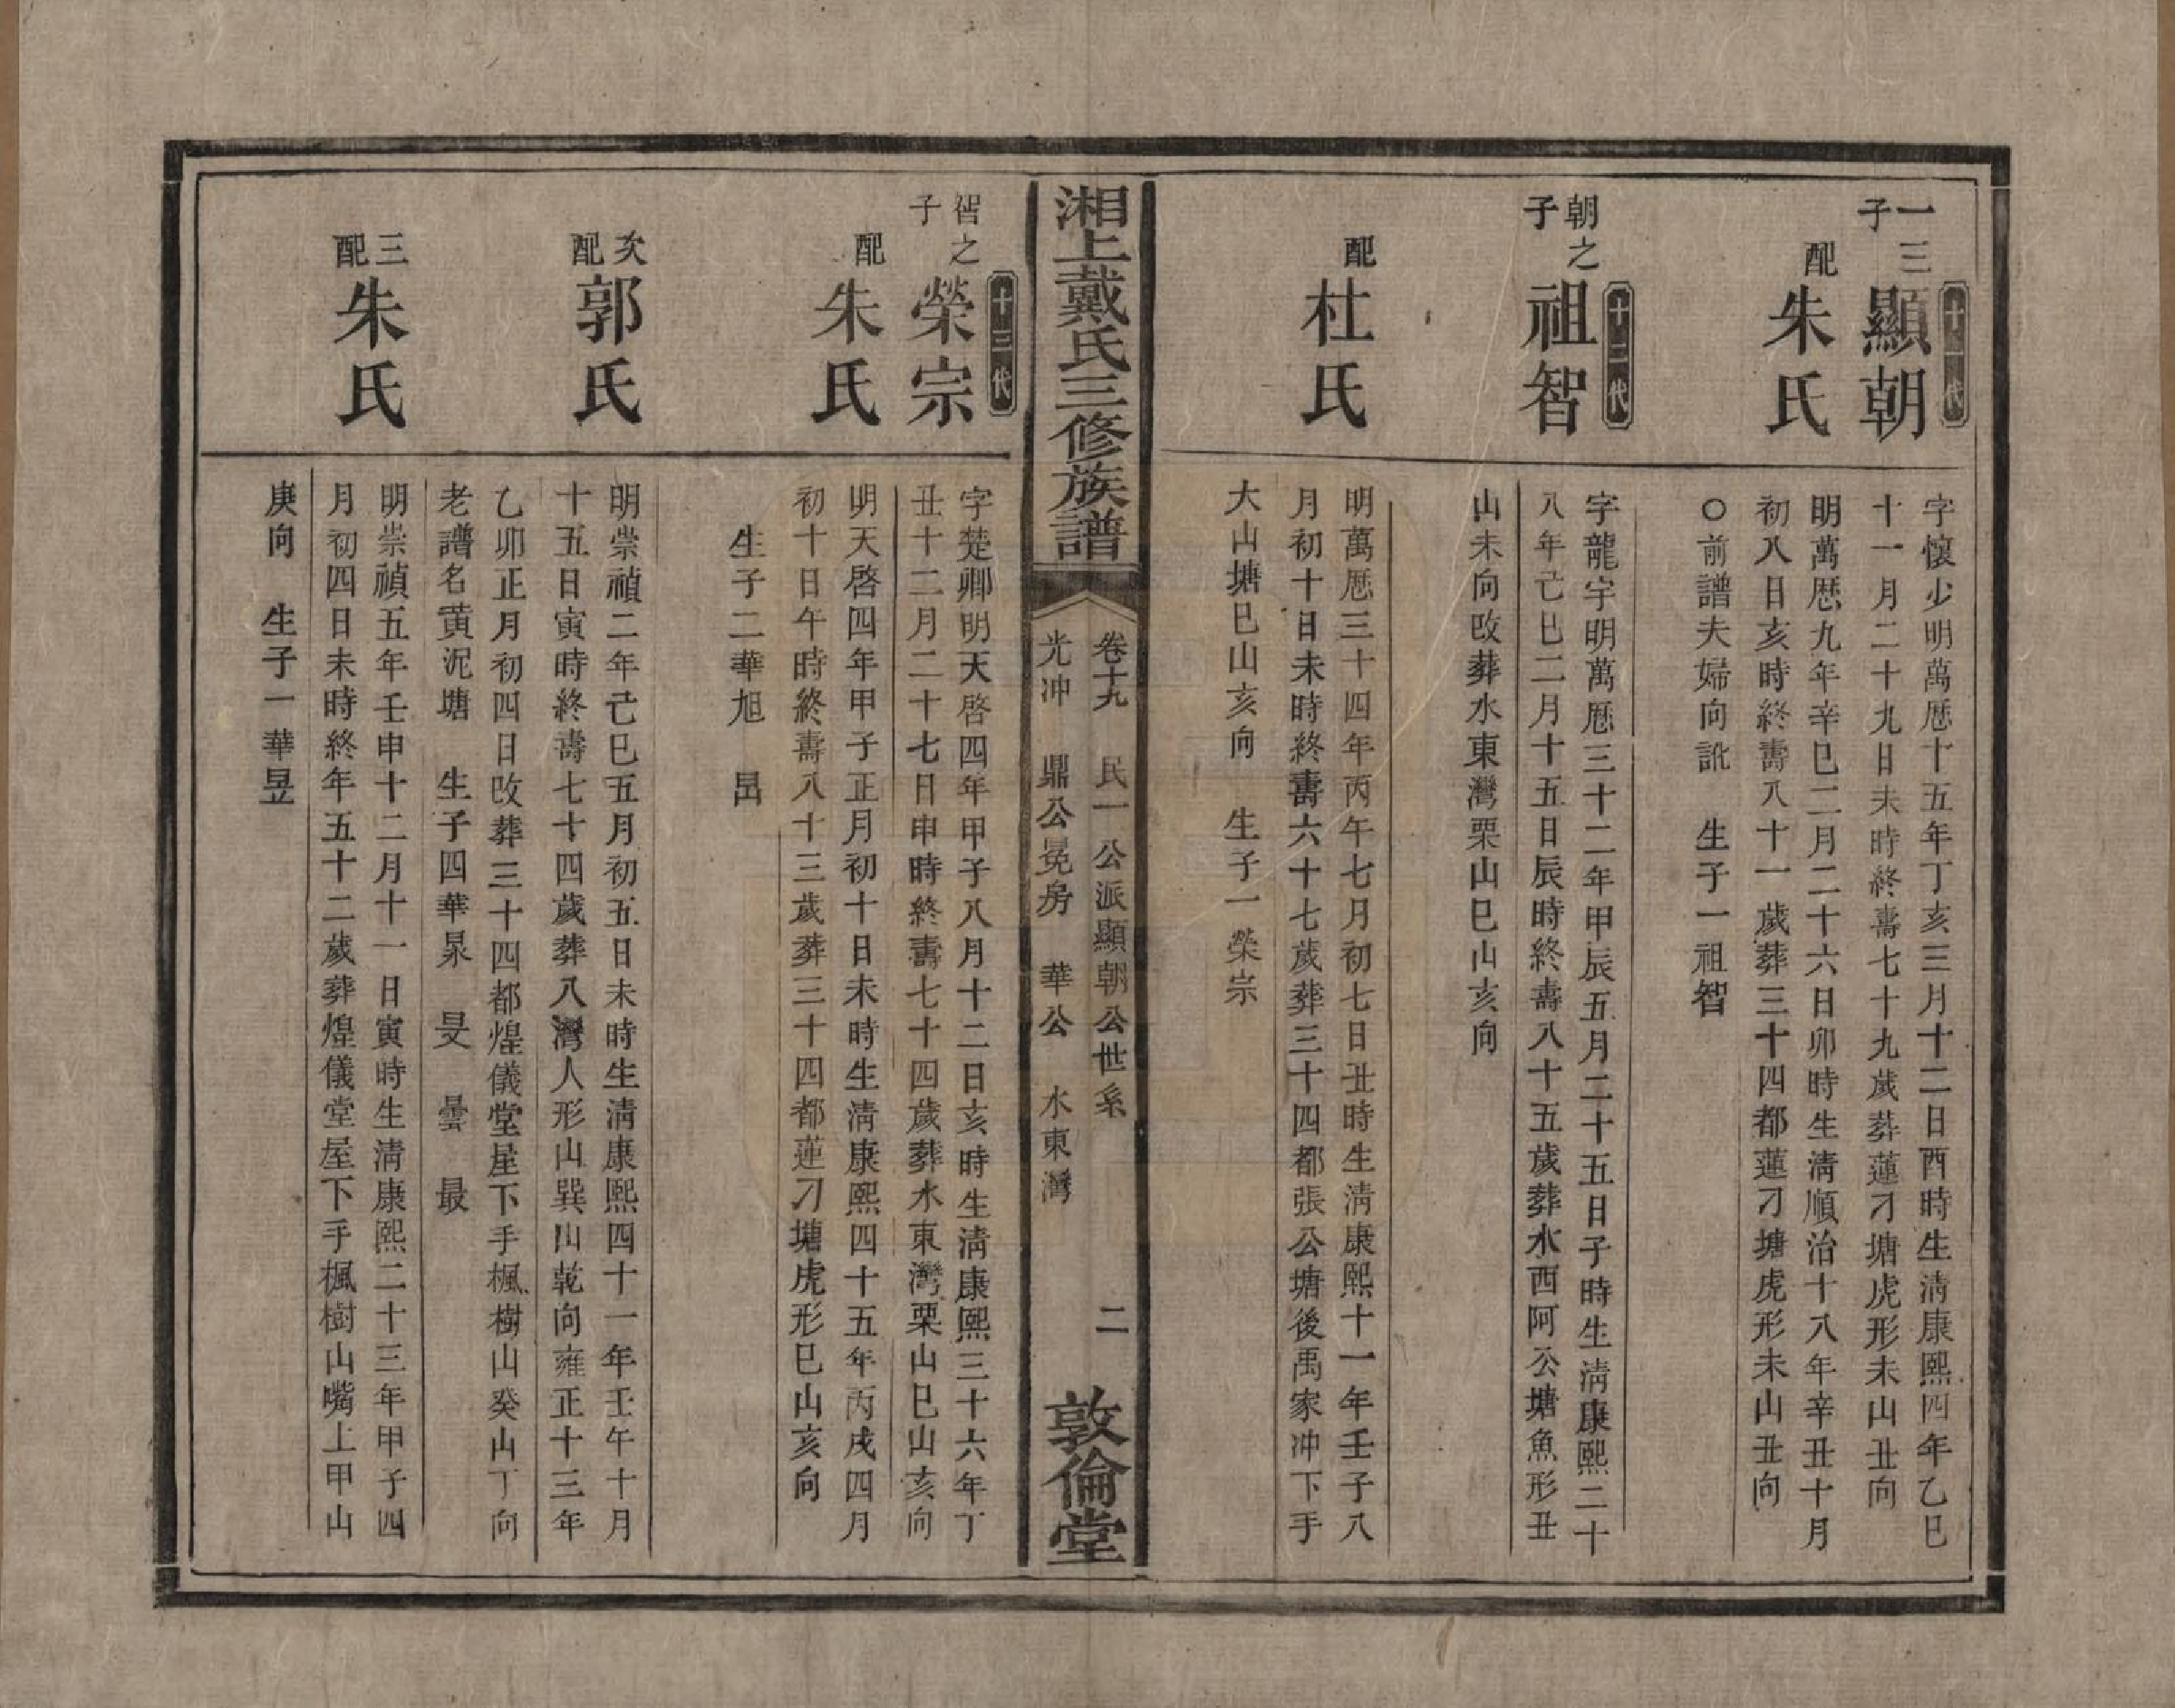 十一代
一三子
顯朝
字懷少明萬曆十五年丁亥三月十二日酉時生清康熙四年乙巳
十一月二十九日未時終壽七十九歲葬蓮刁塘虎形未山丑向
配
朱氏
明萬曆九年辛巳二月二十六日卯時生清順治十八年辛丑十月
初八日亥時終壽八十一歲葬三十四都蓮刁塘虎形未山丑向
○前譜夫婦向訛 生子一祖智
十二代
朝之子
祖智
字龍宇明萬曆三十二年甲辰五月二十五日子時生清康熙二十
八年己巳二月十五日辰時終壽八十五歲葬水西阿公塘魚形丑
山未向改葬水東灣栗山巳山亥向
配
杜氏
明萬曆三十四年丙午七月初七日丑時生清康熙十一年壬子八
月初十日未時終壽六十七歲葬三十四都張公塘後禹家冲下手
大山塘巳山亥向 生子一榮宗
湘上戴氏三修族譜
卷十九 民一公派顯朝公世系 二
光冲 鼎公冕房 華公 水東灣
敦倫堂
十三代
智之子
榮宗
字楚卿明天啓四年甲子八月十二日亥時生清康熙三十六年丁
丑十二月二十七日申時終壽七十四歲葬水東灣栗山巳山亥向
配
朱氏
明天啓四年甲子正月初十日未時生清康熙四十五年丙戌四月
初十日午時終壽八十三歲葬三十四都蓮刁塘虎形巳山亥向
生子二華旭 昺
次配
郭氏
明崇禎二年己巳五月初五日未時生清康熙四十一年壬午十月
十五日寅時終壽七十四歲葬八灣人形山巽山乾向雍正十三年
乙卯正月初四日改葬三十四都煌儀堂屋下手楓樹山癸山丁向
老譜名黄泥塘 生子四華杲 旻 曇 最
三配
朱氏
明崇禎五年壬申十二月十一日寅時生清康熙二十三年甲子四
月初四日未時終年五十二歲葬煌儀堂屋下手楓樹山嘴上甲山
庚向 生子一華昱